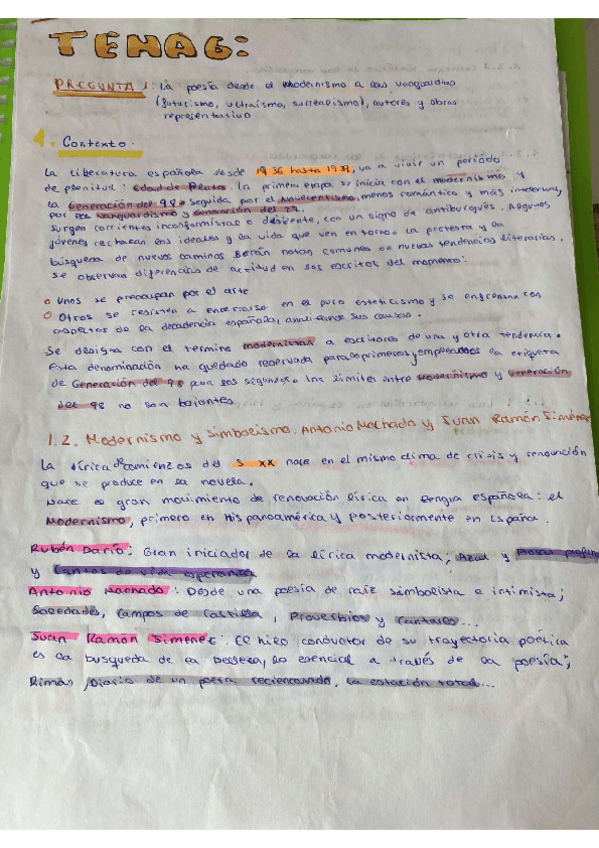 TEMA 6:
PREGUNTA 1: La poesía desde el Modernismo a las vanguardias
(futurismo, ultraísmo, surrealismo), autores y obras
representativo
1. Contexto.
La literatura española desde 1936 hasta 1939, va a vivir un período
de plenitud: Edad de Plata. La primera etapa se inicia con el modernismo y
la Generación del 98. seguida por el Novecentismo, menos romántico y más intelectual,
por las vanguardismo y Generación del 27.
Surgen corrientes inconformistas o disidente, con un signo de antiburgués. Algunos
jóvenes rechazan los ideales y la vida que ven entorno. La protesta y la
búsqueda de nuevos caminos serán notas comunes en nuevas tendencias literarias.
Se observan diferencias de actitud en los escritos del momento:
Unos se preocupan por el arte
Otros se resisten a encerrarse en el puro esteticismo y se enfrentan con
aspectos de la decadencia española, analizando sus causas.
Se designa con el termino modernistas a escritores de una y otra tendencia.
Esta denominación ha quedado reservada para los primeros y empleando la etiqueta
de Generación del 98 para los segundos. Los límites entre Modernismo y Generación
del 98 no son tajantes.
1.2. Modernismo y Simbolismo. Antonio Machado y Juan Ramón Jiménez
La lírica de comienzos del S XX nace en el mismo clima de crisis y renovación
que se produce en la novela.
Nace el gran movimiento de renovación lírica en lengua española: el
Modernismo, primero en Hispanoamérica y posteriormente en España.
Rubén Darío: Gran iniciador de la lírica modernista, Azul y Prosas profanas
y Cantos de vida esperanza
Antonio Machado: Desde una poesía de raíz simbolista e intimista;
Soledades, Campos de Castilla, Proverbios y Cantares...
Juan Ramon Simenez: El hilo conductor de su trayectoria poética
es la busqueda de la belleza, lo esencial a través de la poesía;
Rimas, Diario de un poeta reciencasado, la estación total...